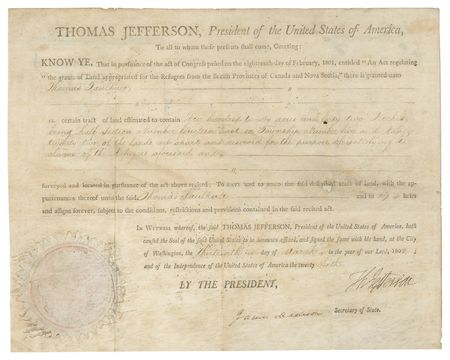 THOMAS JEFFERSON, President of the United States of America,
To all to whom these presents shall come, Greeting:
KNOW YE, That in pursuance of the act of Congress passed on the eighteenth day of February, 1801, entitled "An Act regulating
"the grants of Land appropriated for the Refugees from the British Provinces of Canada and Nova Scotia," there is granted unto
Thomas Faulkner
a certain tract of land estimated to contain hundred sixty acres and fifty two
being half Section Number fourteen East in Township Number five and Range
twenty two of the lands set apart and reserved for the purpose of satisfying the
claims of the Refugees aforesaid
surveyed and located in pursuance of the act above recited: To have and to hold the said described tract of land, with the ap-
purtenances thereof unto the said Thomas Faulkner and to his heirs
and assigns forever, subject to the conditions, restrictions and provisions contained in the said recited act.
In Witness whereof, the said THOMAS JEFFERSON, President of the United States of America, hath
caused the Seal of the said United States to be hereunto affixed, and signed the same with his hand, at the City
of Washington, the thirteenth day of March in the year of our Lord,
and of the Independence of the United States of America the twenty
BY THE PRESIDENT,
Th: Jefferson
James Madison Secretary of State.